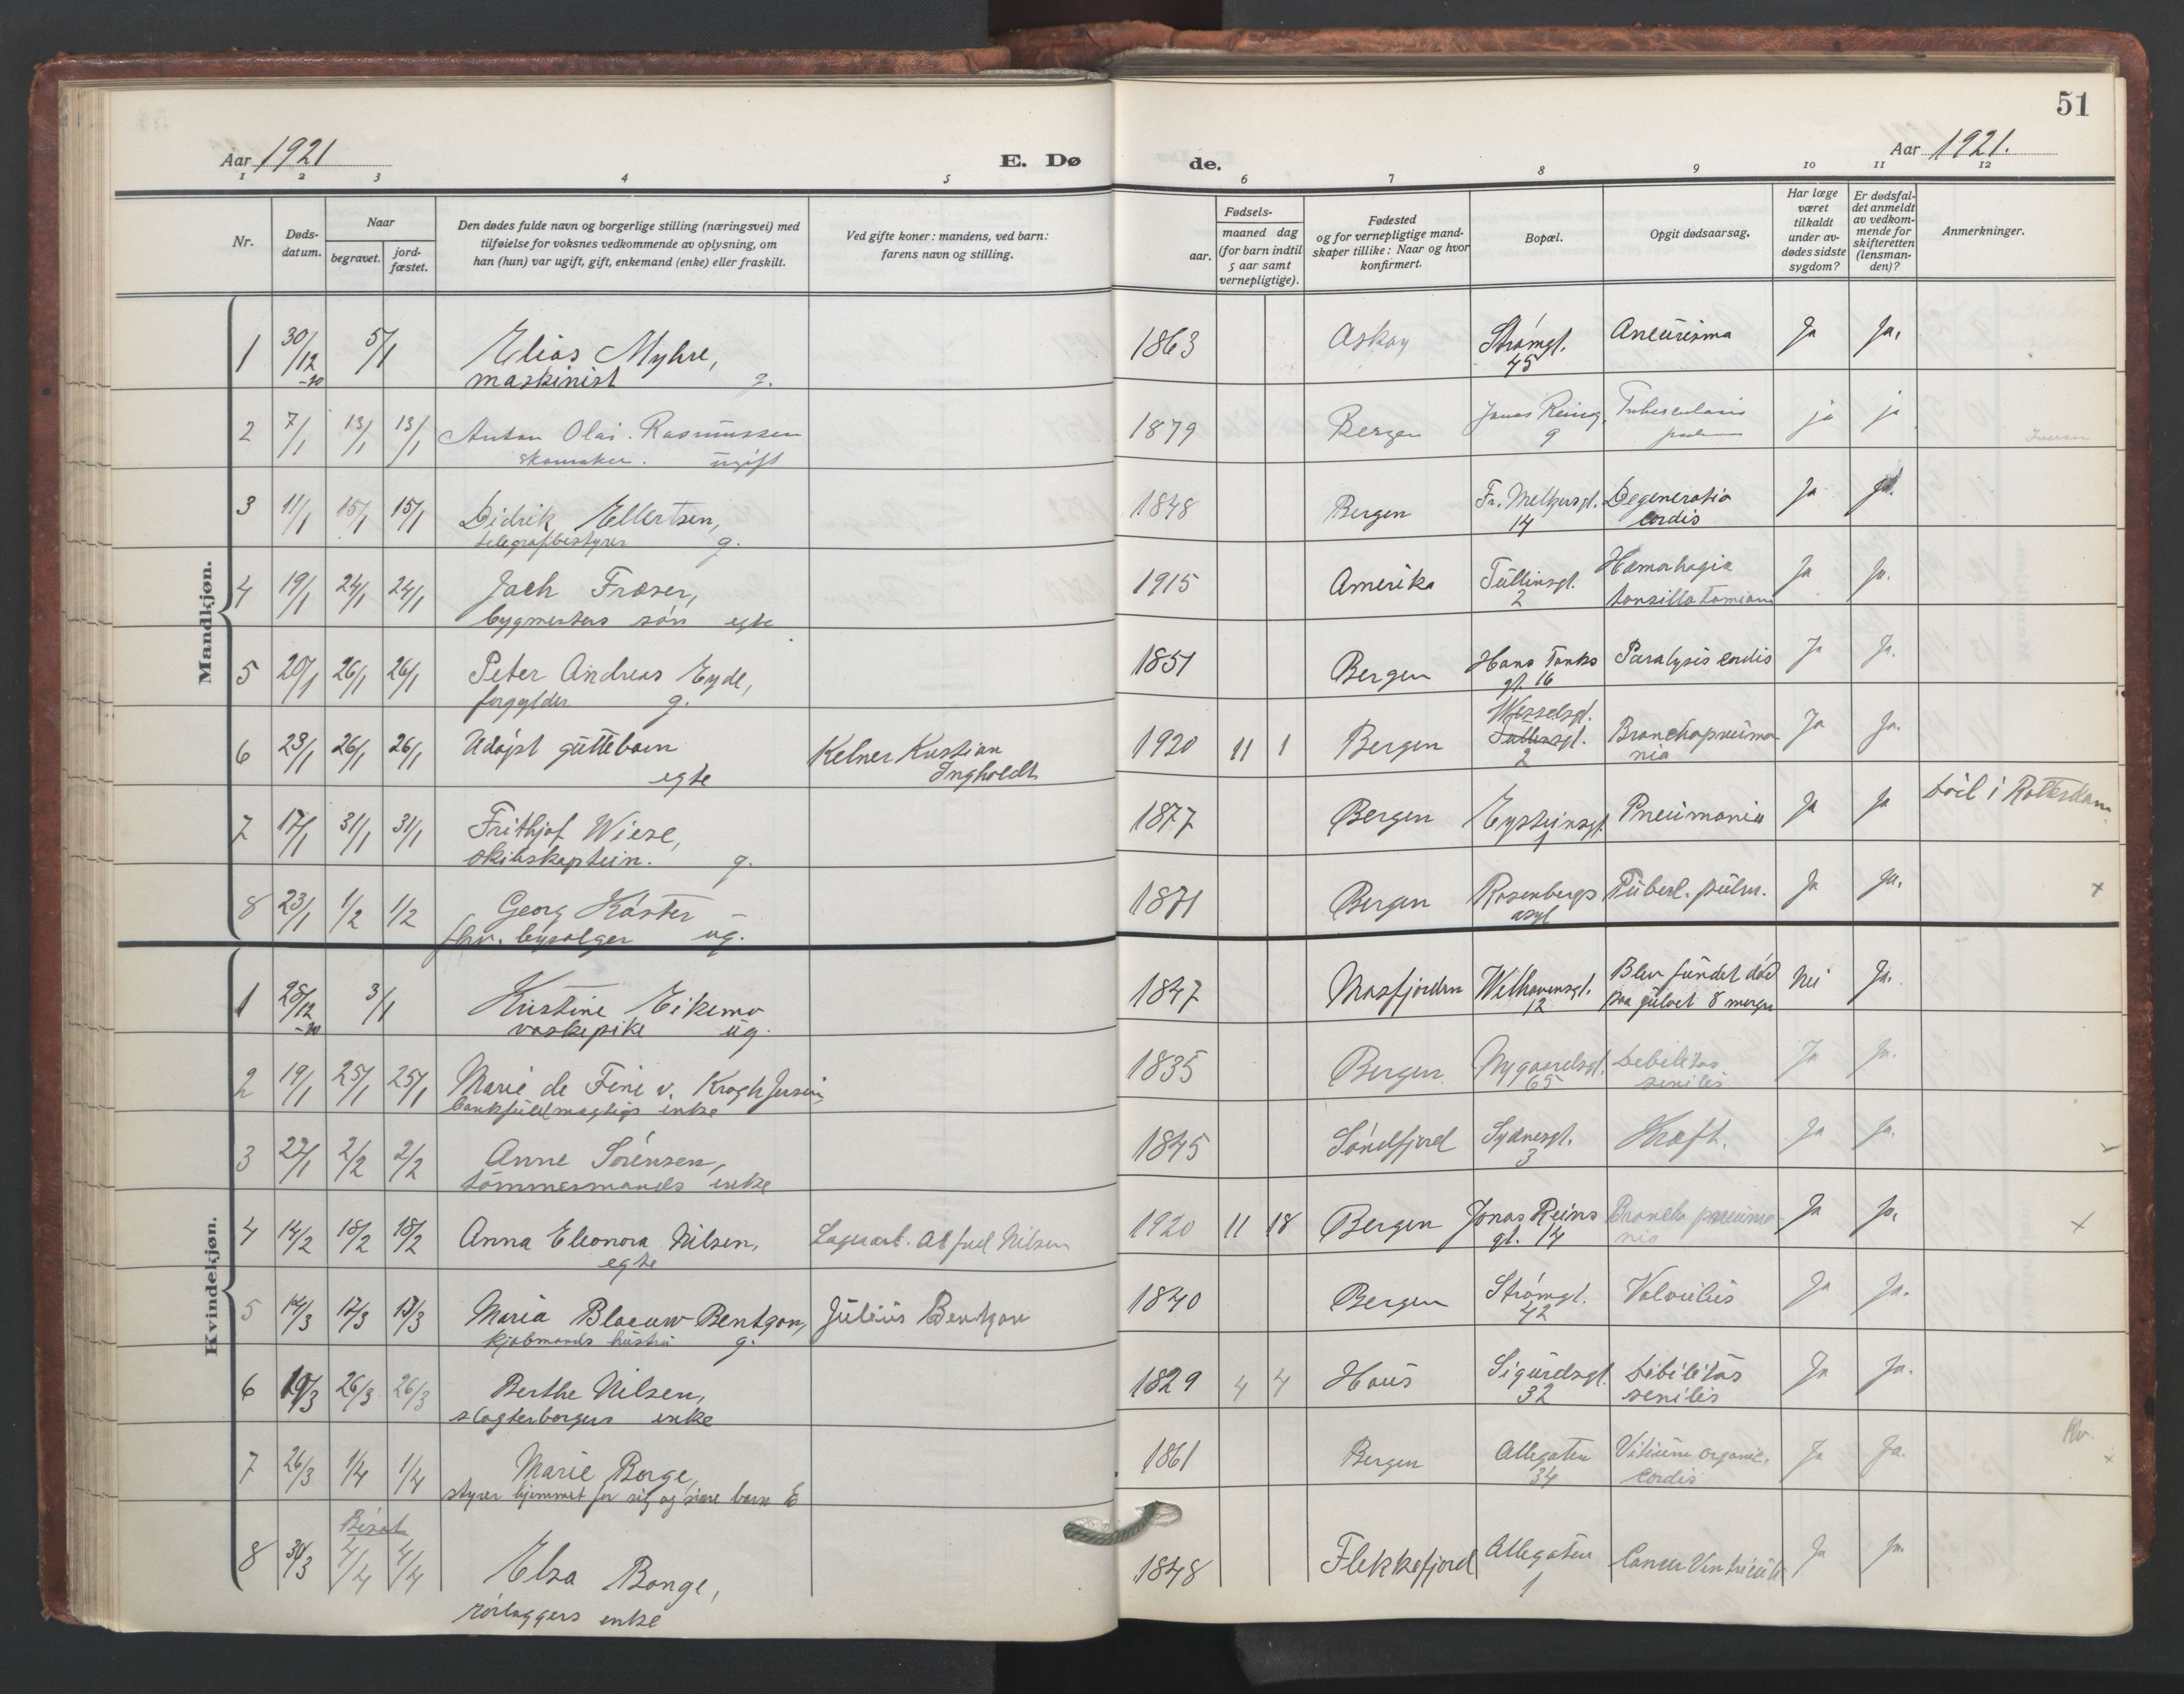 51
Aar 1921
E. Dø
de.
Aar 1921.
1 2 3 4 5 6 7 8 9 10 11 12
Nr.
Døds-
datum.
Naar
begravet.
jord-
fæstet.
Den dødes fulde navn og borgerlige stilling (næringsvei) med
tilføielse for voksnes vedkommende av oplysning, om
han (hun) var ugift, gift, enkemand (enke) eller fraskilt.
Ved gifte koner: mandens, ved barn:
farens navn og stilling.
Fødsels-
aar.
maaned dag
(for barn indtil
5 aar samt
vernepligtige).
Fødested
og for vernepligtige mand-
skaper tillike: Naar og hvor
konfirmert.
Bopæl.
Opgit dødsaarsag.
Har læge
været
tilkaldt
under av-
dødes sidste
sygdom?
Er dødsfal-
det anmeldt
av vedkom-
mende for
skifteretten
(lensman-
den)?
Anmerkninger.
Mandkjøn.
1 30/12 5/1 Elias Myhre, 1863 Askøy Strømgt. Aneurisma Ja Ja.
-20 maskinist g. 45
2 7/1 13/1 13/1 Anton Olai Rasmussen 1879 Bergen Jonas Reinsg. Tuberculosis ja ja
skomaker. ugift 9
3 11/1 15/1 15/1 Didrik Ellertsen, 1848 Bergen Fr. Meltzersgt. Degeneratio Ja Ja.
telegrafbestyrer g. 14 cordis
4 19/1 24/1 24/1 Jack Fraser, 1915 Amerika Tullinsgt. Hæmorhagia Ja Ja.
bygmesters søn egte 2
5 20/1 26/1 26/1 Peter Andreas Eyde, 1851 Bergen Hans Tanks Paralysis cordis Ja Ja.
forgylder g. gt. 16
Wesselsgt.
6 23/1 26/1 26/1 Udøpt guttebarn Kelner Kristian 1920 11 1 Bergen Tullinsgt. Bronchopneumo- Ja Ja.
egte Ingholdt 2 nia
7 17/1 31/1 31/1 Frithjof Wiese, 1877 Bergen Eysteinsgt. Pneumonia Ja Ja Død i Rotterdam
skibskaptein. g. 1
8 23/1 1/2 1/2 Georg Køster 1871 Bergen Rosenbergs Tuberl. pulm. Ja Ja. x
fhv. bysælger ug. asyl
Kvindekjøn.
1 28/12 3/1 Kristine Eikemo 1847 Masfjorden Welhavensgt. Blev fundet død Nei Ja.
-20 vaskepike ug. 12 paa gulvet 8 morgen
2 19/1 25/1 25/1 Marie de Fine v. Krogh Jersin, 1835 Bergen Nygaardsgt. Debilitas Ja Ja.
bankfuldmægtigs enke 65 senilis
3 22/1 2/2 2/2 Anne Sørensen, 1845 Søndfjord Sydnesgt. Kræft. Ja Ja.
tømmermands enke 3
4 14/2 18/2 18/2 Anna Eleonora Nilsen, Lagerarb. Alfred Nilsen 1920 11 18 Bergen Jonas Reins Broncho pneumo- Ja Ja. x
egte gt. 14 nia
5 14/3 17/3 17/3 Maria Blaauw Bentzon, Julius Bentzon 1840 Bergen Strømgt. Volvulus Ja Ja.
kjøbmands hustru g. 42
6 19/3 26/3 26/3 Berthe Nilsen, 1829 4 4 Haus Sigurdsgt. Debilitas Ja Ja.
slagterborgers enke 32 senilis
7 26/3 1/4 1/4 Marie Borge, 1861 Bergen Allegaten Vitium organic. Ja Ja. x
styrer hjemmet for sig og sine barn E 34 cordis
8 30/3 4/4 4/4 Elsa Bonge, 1848 Flekkefjord Allegaten Cancer Ventriculi Ja Ja.
rørlæggers enke 1